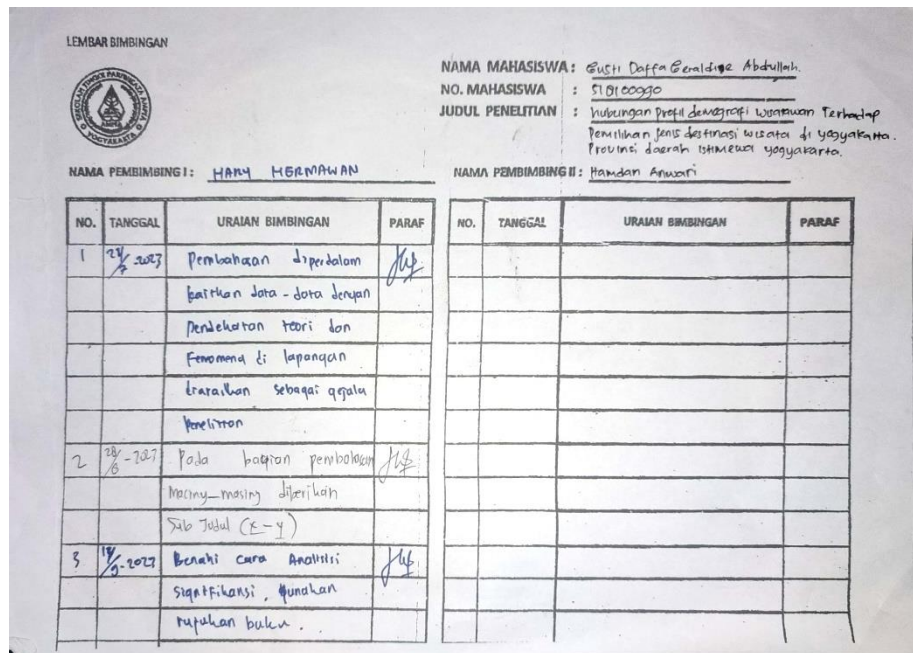 LEMBAR BIMBINGAN
SEKOLAH TINGGI PARIWISATA AMPTA
YOGYAKARTA
NAMA MAHASISWA : Gusti Daffa Geraldine Abdullah.
NO. MAHASISWA :
JUDUL PENELITIAN : hubungan profil demografi wisatawan Terhadap
Pemilihan jenis destinasi wisata di yogyakarta.
Provinsi daerah istimewa yogyakarta.
NAMA PEMBIMBING I : HARY HERMAWAN
NAMA PEMBIMBING II : Hamdan Anwari
NO. TANGGAL URAIAN BIMBINGAN PARAF
1 2023 Pembahasan diperdalam
kaitkan data - data dengan
Pendekatan teori dan
Fenomena di lapangan
sebagai gejala
Penelitian
2 Pada bagian pembahasan
masing_masing diberikan
Sub Judul (x-y)
3 2023 Benahi cara Analisisi
signifikansi, gunakan
rujukan buku.
NO. TANGGAL URAIAN BIMBINGAN PARAF